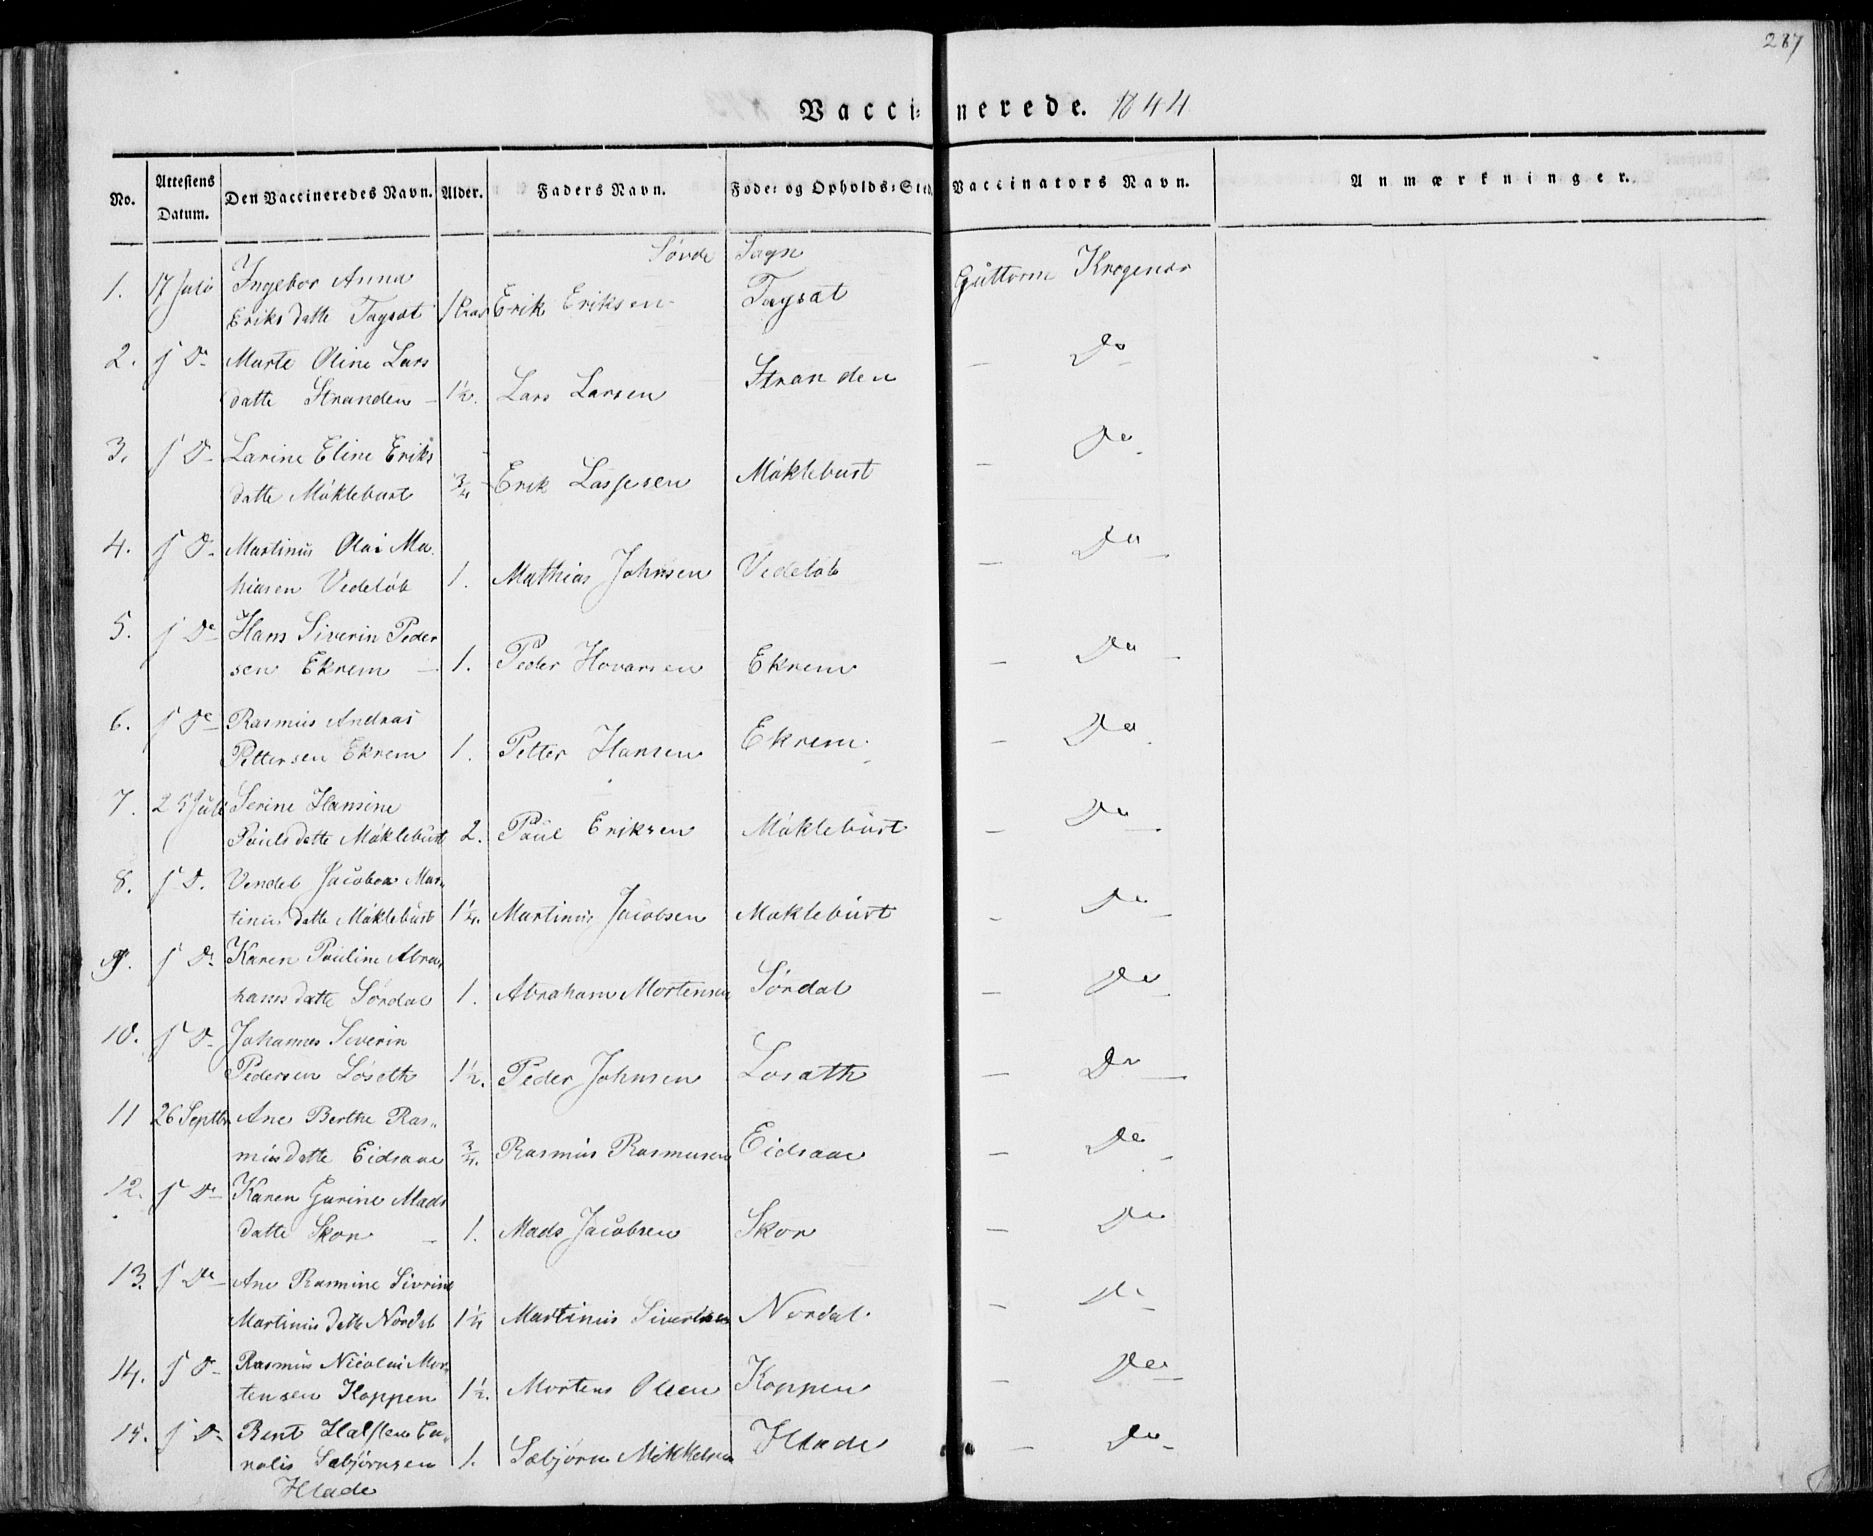 287
Vaccinerede. 1844
No. Attestens Datum. Den Vaccineredes Navn. Alder. Faders Navn. Føde: og Opholds: Sted. Vaccinators Navn. Anmærkninger.
Sövde Sogn
1. 17 Julo Ingebor Anna Guttorm
Eriks datte Tagsat 1 Erik Eriksen Tagsat
2. J D. Marte Oline Lars Do
datte Stranden - 1½. Lars Larsen Stranden
3. J D. Larine Eline Eriks Do
datte Möklebust ¾ Erik Lassesen Möklebust
4. J D. Martinus Olai Ma Do
hiasen Vedelöb 1. Mathias Johnsen Vedelöb
5. J De Hans Siverin Peder Do
sen Ekrem - 1. Peder Hovarsen Ekrem
6. J De Rasmus Andras Do
Pettersen Ekrem 1. Petter Hansen Ekrem
7. 25 Juli Serine Hansine Do
Pauls datte Möklebust 2. Paul Eriksen Möklebust
8. J D. Vendel Jacobea Mar- Do
tinus datte Möklebust 1¼. Martinus Jacobsen Moklebust
9. J D. Karen Pauline Abra- Do
hams datte Sördal 1. Abraham Mortensen Sördal
10. J D. Johannes Severin Do
Pedersen Löseth 1½. Peder Johnsen Losath
11 26 Septbr Ane Berthe Ras- Do
mus datte Eidsaae ¾. Rasmus Rasmusen Eidsaae
12. J De Karen Gurine Mads Do
datte Skor - 1. Mads Jacobsen Skor
13. J De Ane Rasmine Sivrine Do
Martinus datte Nordal 1¼ Martinus Sivertsen Nordal.
14. J D. Rasmus Nicolai Mor- Do
tensen Koppen 1½. Morten Olsen Koppen
15. J D. Bent Halsten Do
nelis Sæbjörnsen 1. Sæbjörn Mikkelsen Hlade
Hlade